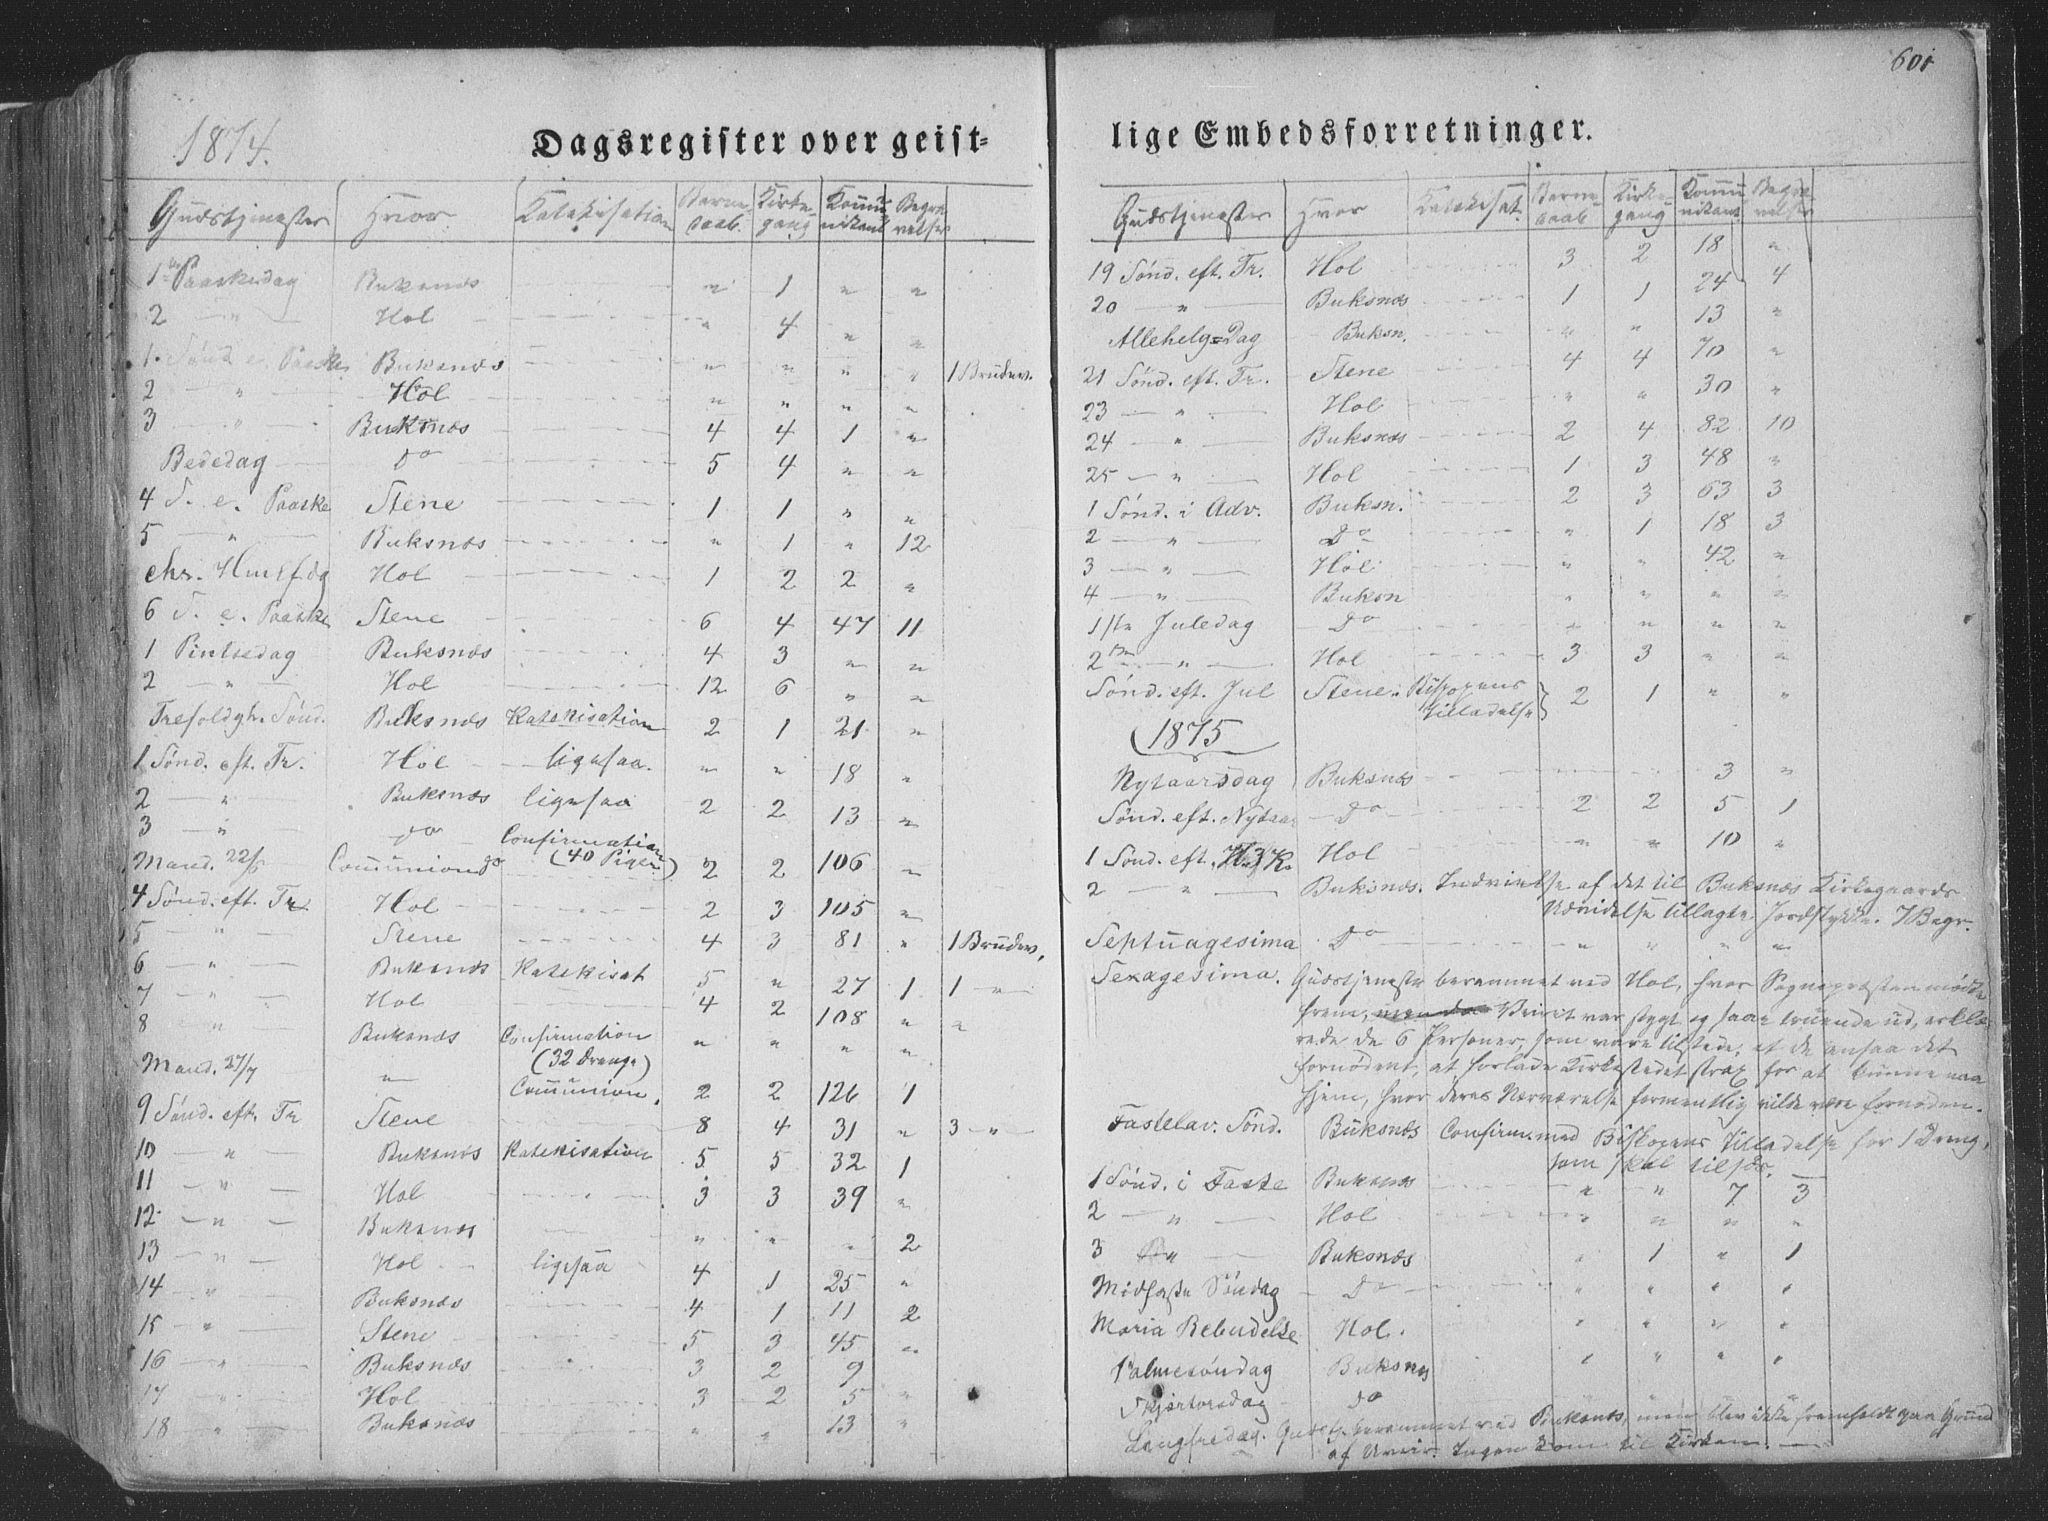 601
1874.
Dagsregister over geist-
Gudstjenester Hvor Katekisation Barne- Kirke- Kommu- Begra-
daab. gang nikant velser
1ste Paaskedag Buksnæs " 1 " "
2 " Hol " 4 " "
1. Sønd. e. Paaske Buksnæs " " " " 1 Brudev.
2 " Hol " " " "
3 " Buksnæs 4 4 1 "
Bededag Do 5 4 " "
4 S. e. Paaske Stene 1 1 " "
5 " Buksnæs " 1 " 12
Chr. Himlfdg Hol 1 2 2 "
6 S. e. Paaske Stene 6 4 47 11
1 Pintsedag Buksnæs 4 3 " "
2 " Hol 12 6 " "
Trefoldgh. Sønd. Buksnæs Katekisation 2 1 21 "
1 Sønd. eft. Tr. Hol ligesaa. " " 18 "
2 " Buksnæs ligesaa 2 2 13 "
3 " do Confirmation
(40 Piger)
Mand. 22/6 Communion do 2 2 106 "
4 Sønd. eft. Tr. Hol 2 3 105 "
5 " Stene 4 3 81 " 1 Brudev.
6 " Buksnæs Katekisat 5 " 27 1 1 "
7 " Hol 4 2 108 " "
8 " Buksnæs Confirmation " " " "
(32 Drenge)
Mand. 27/7 " Communion. 2 2 126 1
9 Sønd. eft. Tr Stene 8 4 31 " 3 "
10 " Buksnæs Katekisation 5 5 32 1
11 " Hol 3 3 39 "
12 " Buksnæs " " " 2
13 " Hol ligesaa 4 1 25 "
14 " Buksnæs 4 1 11 2
15 " Stene 5 3 45 "
16 " Buksnæs 3 2 9
17 " Hol 3 2 5 "
18 " Buksnæs " " 13 "
lige Embedsforretninger.
Gudstjenester Hvor Katekisat. Barne- Kirke- Kommu Begra-
daab. gang nikant velser
19 Sønd. eft. Tr. Hol 3 2 18 "
20 " Buksnæs 1 1 24 4
Allehelg=Dag Buksn. " " 13 "
21 Sønd. eft. Tr. Stene 4 4 70 "
23 " Hol " " 30 "
24 " Buksnæs 2 4 82 10
25 " Hol 1 3 48 "
1 Sønd. i Adv. Buksn. 2 3 63 3
2 " Do " 1 18 3
3 " Hol " " 42 "
4 " Buksn " " " "
1ste Juledag Do " " " "
2den " Hol 3 3 " "
Sønd. eft. Jul Stene. Biskopens
Tilladelse 2 1 " "
1875
Nytaarsdag Buksnæs 3 "
Sønd. eft. Nytaar Do 2 2 5 1
1 Sønd. eft. H. 3 K. Hol " " 10 "
2 " Buksnæs. Indvielse af det til Buksnæs Kirkegaards
Udvidelse tillagte Jordstykke. 7 Begr.
Septuagesima Do " " " "
Sexagesima. Gudstjeneste berammet ved Hol, hvor Sognepræsten mødte
frem, men da Veiret var stygt og saae truende ud, erklæ-
rede de 6 Personer, som vare tilstede, at de ansaa det
fornødent, at forlade Kirkestedet strax for at kunne naa
hjem, hvor deres Nærværelse formentlig vilde være fornøden.
Fastelav. Sønd. Buksnæs Confirm. med Biskopens Tilladelse for 1 Dreng,
som skal tilsøs.
1 Sønd. i Faste Buksnæs " " 7 3
2 " Hol " " " "
3 " Buksnæs " 1 " 1
Midfaste Søndag Do " " " "
Maria Bebudelse Hol. " " " "
Palmesøndag Buksnæs " " " "
Skjærtorsdag do " " "
Langfredag. Gudstj. berammet ved Buksnæs, men blev ikke fremholdt paa Grund
af Uveir. Ingen kom til Kirken.